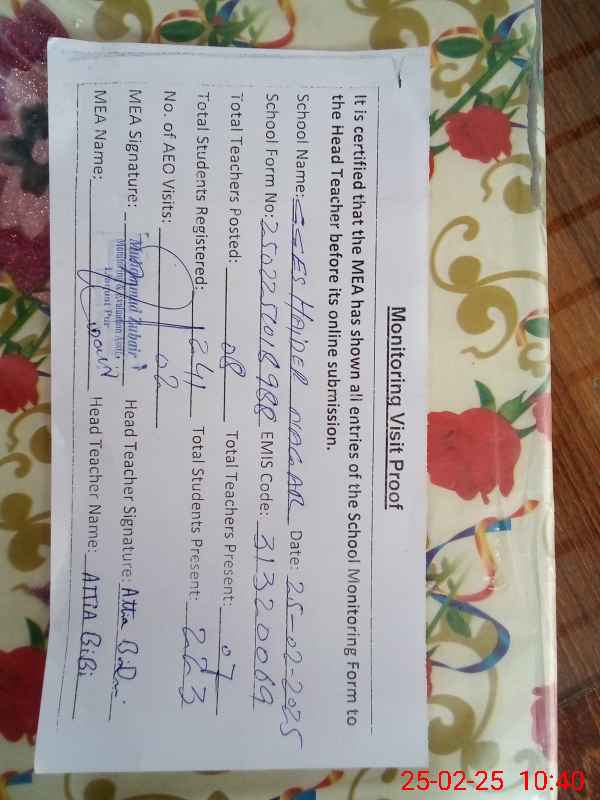 Monitoring Visit Proof
It is certified that the MEA has shown all entries of the School Monitoring Form to
the Head Teacher before its online submission.
School Name: GGES HAIDER NAGAR Date: 25-02-2025
School Form No: 2502251018988 EMIS Code: 31320069
Total Teachers Posted: 08 Total Teachers Present: 07
Total Students Registered: 241 Total Students Present: 223
No. of AEO Visits: 02
MEA Signature: Head Teacher Signature: Attia BiBi
Muhammad Zubair
Monitoring & Evaluation Asstt.
MEA Name: Head Teacher Name: ATTIA BiBi
25-02-25 10:40